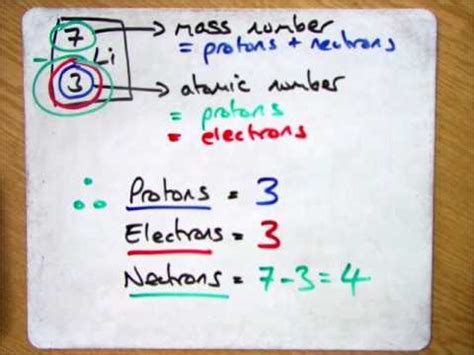 7 → mass number
= protons + neutrons
Li
3 → atomic number
= protons
= electrons
∴ Protons = 3
Electrons = 3
Neutrons = 7-3=4